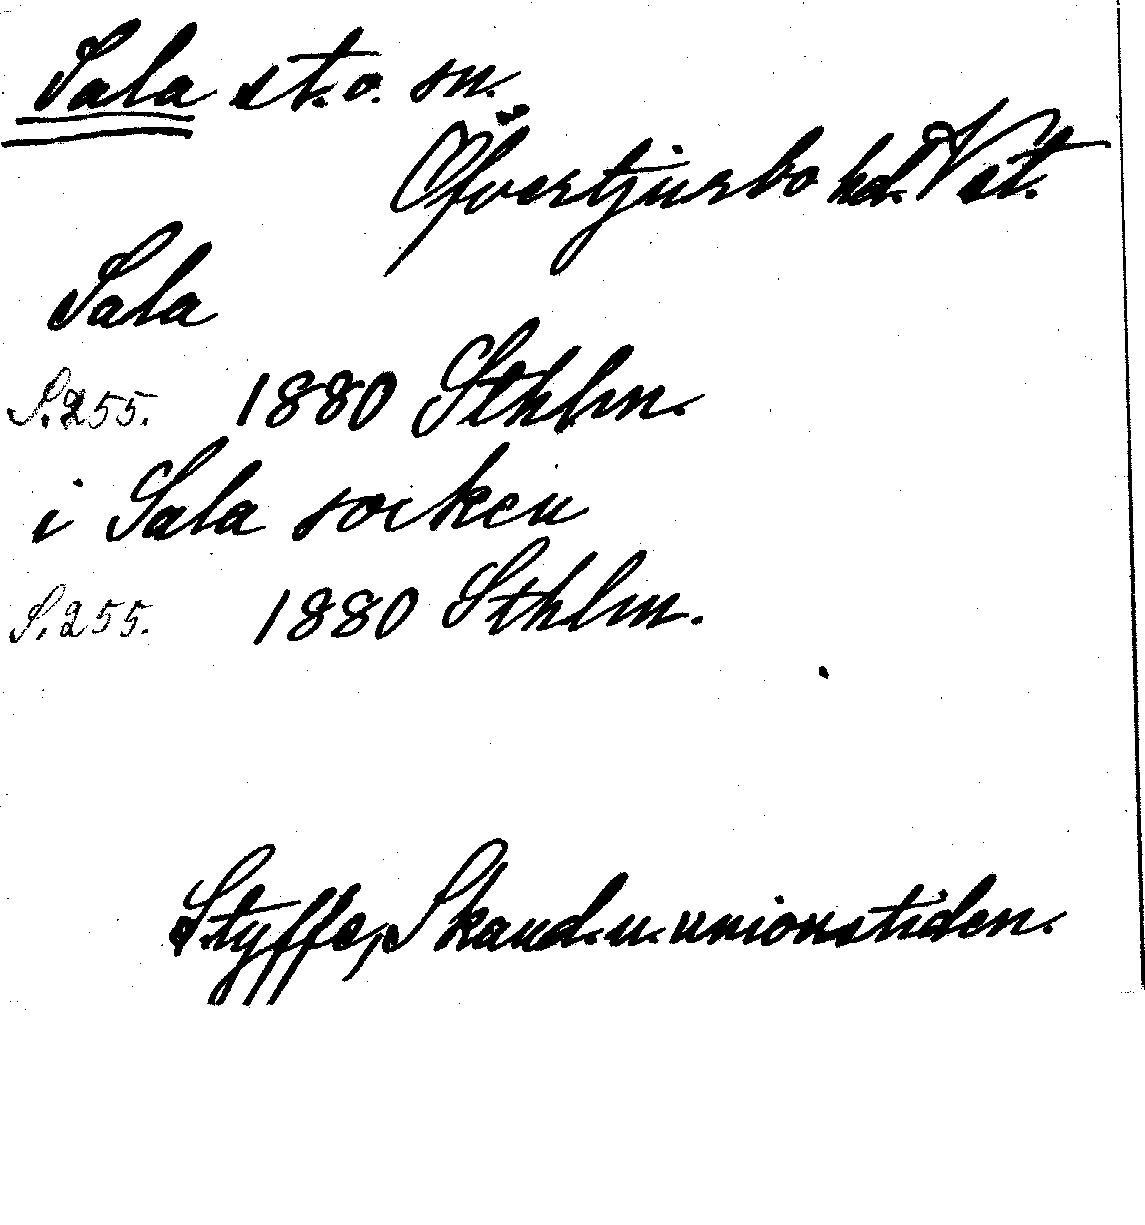 Sala st. o. sn.
Öfvertjurbo hd. Vst.
Sala
S. 255. 1880 Sthlm.
i Sala socken
S. 255. 1880 Sthlm.
Styffe, Skand. u. unionstiden.